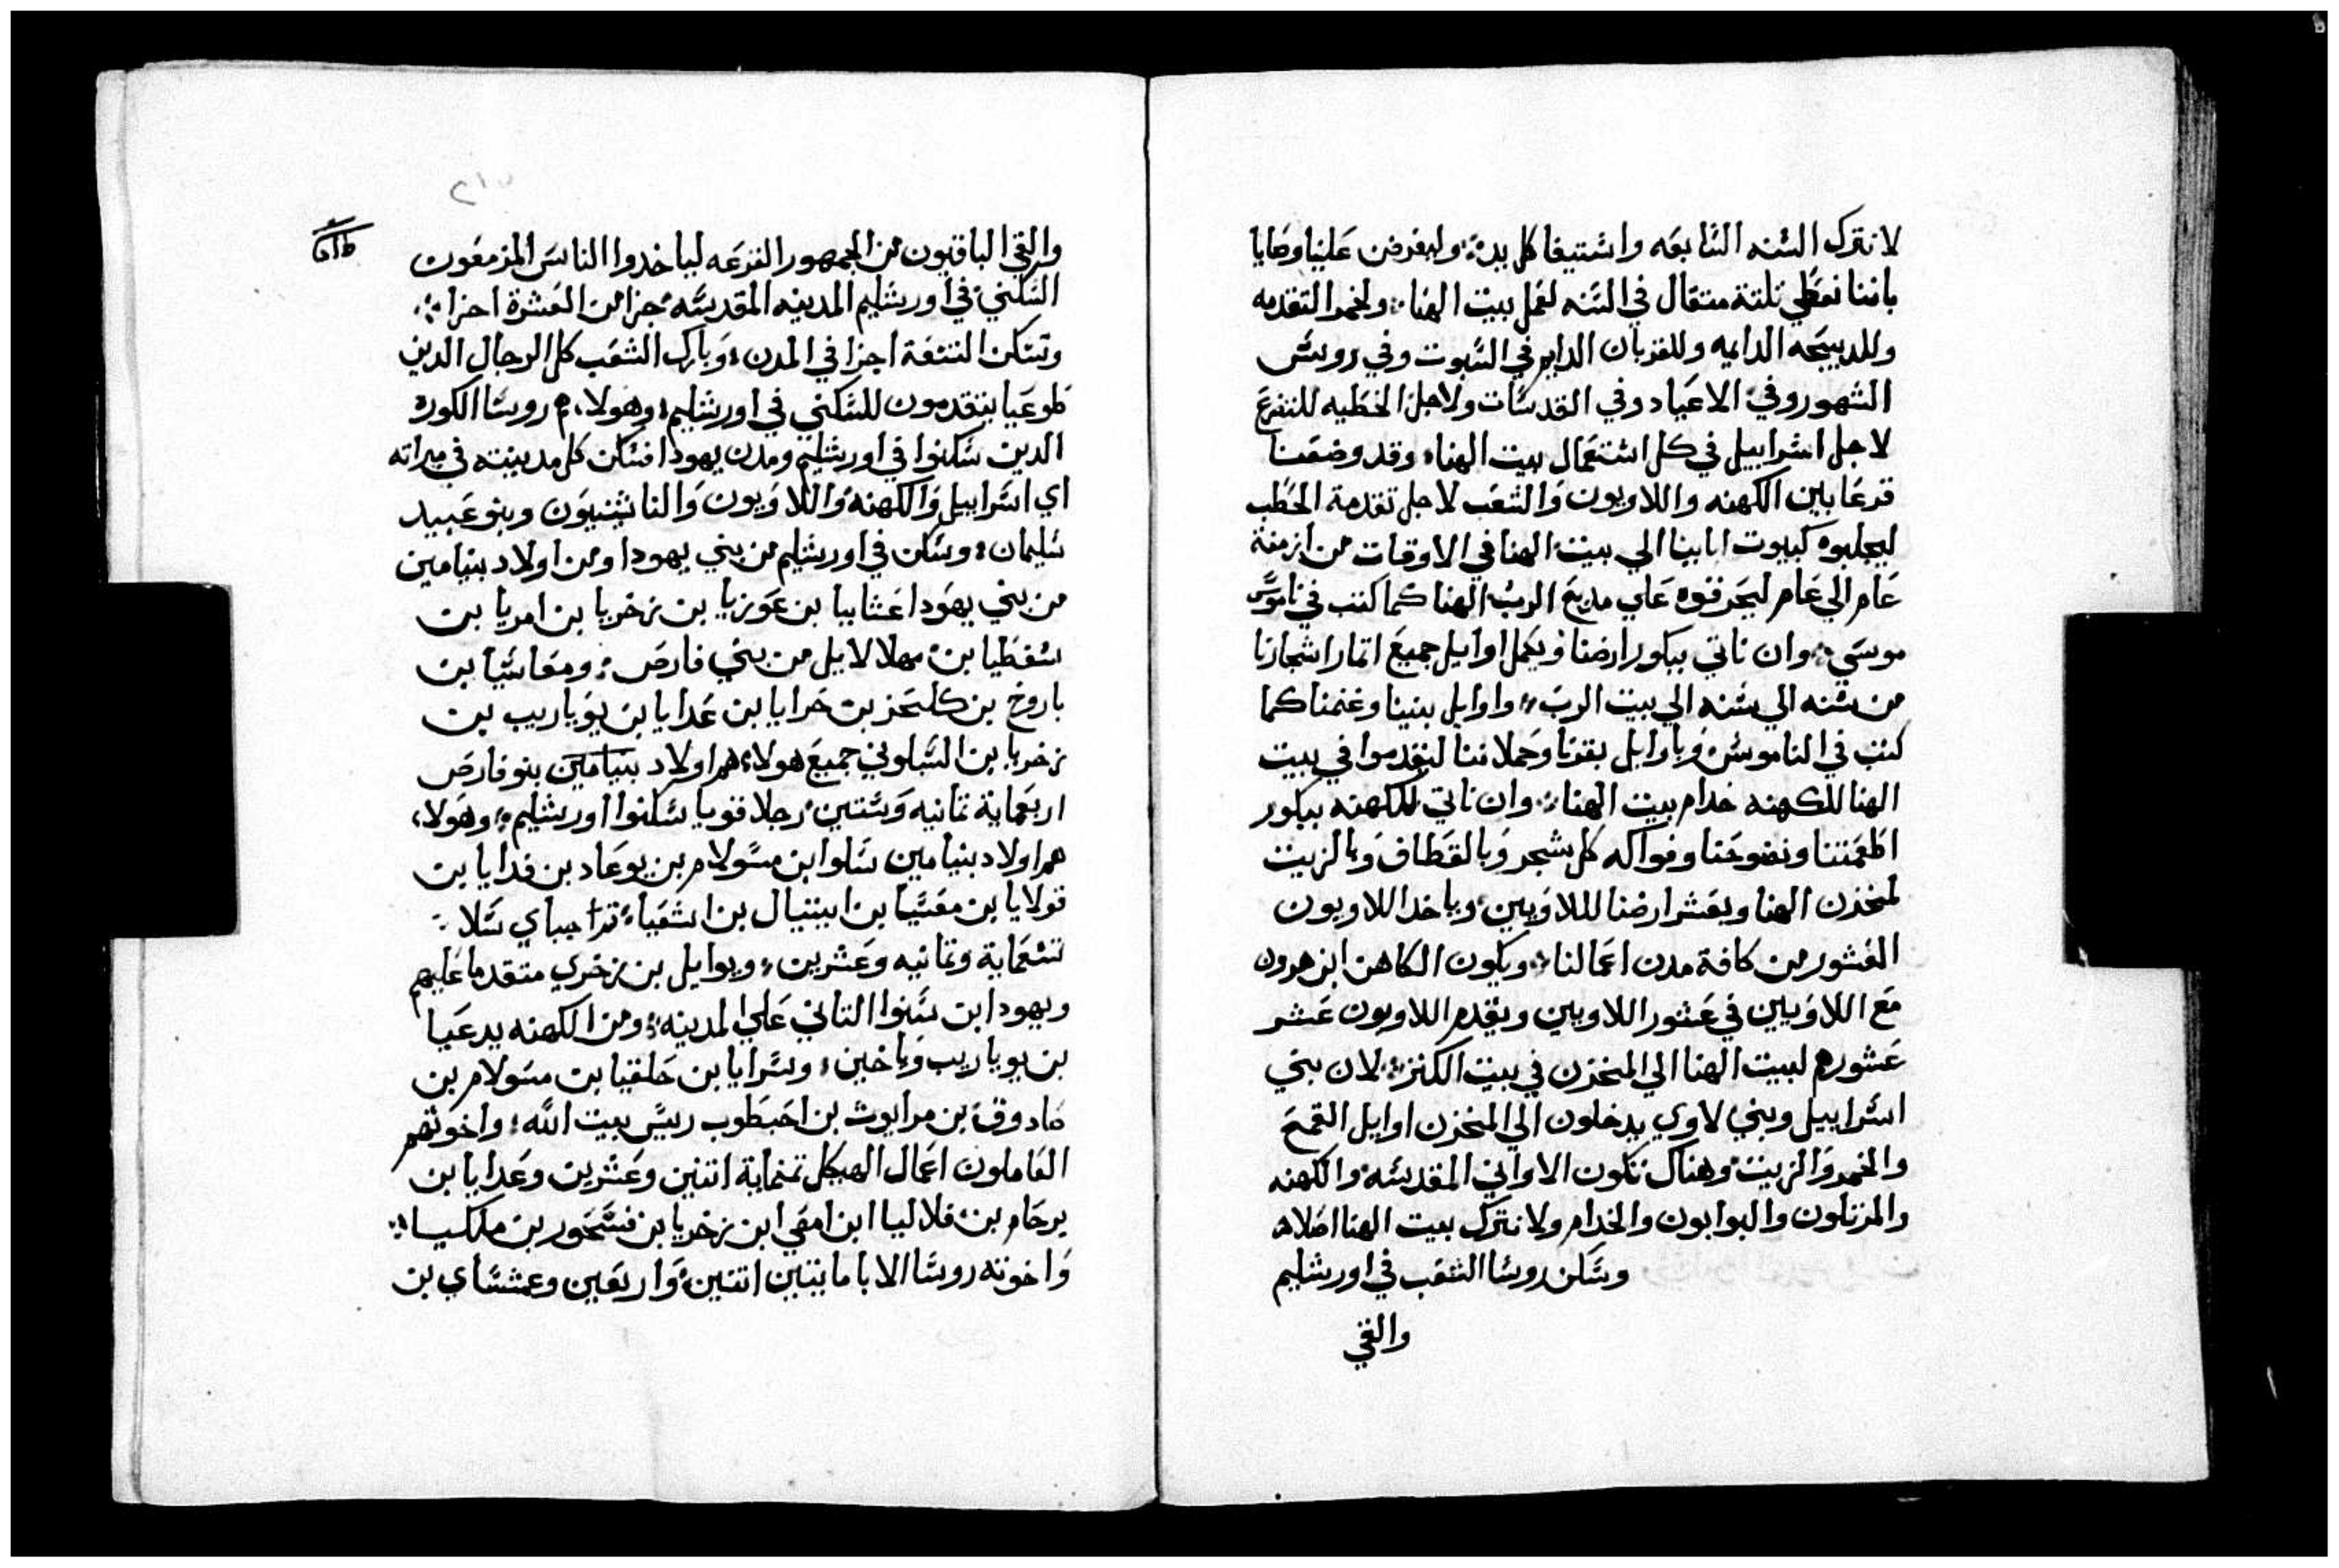 لا نترك السنه السابعه واستيفا كل يد؛ وليفرض علينا وصايا
باننا نعطي تلتة متقال في السنه لعمل بيت الهنا؛ ولخبز التقدمه
وللدبيحه الدايمه وللقربان الدايم في السبوت وفي رووس
الشهور وفي الاعياد وفي القدسات ولاجل الخطيه للتضرع
لاجل اسراييل في كل استعمال بيت الهنا؛ وقد وضعنا
قرعا بين الكهنه واللاويون والشعب لاجل تقدمة الحطب
ليجلبوه كبيوت ابابينا الي بيت الهنا في الاوقات من ازمنة
عام الي عام ليحرقوه علي مدبح الرب الهنا كما كتب في ناموس
موسي؛ وان ناتي ببكور ارضنا وبكل اوايل جميع اتمار اشجارنا
من سنه الي سنه الي بيت الرب؛ واوايل بنينا وغنمنا كما
كتب في الناموس وباوايل بقرنا وحملاننا لنقدموا في بيت
الهنا للكهنه خدام بيت الهنا؛ وان ناتي للكهنه ببكور
اطعمتنا ونضوحنا وفواكه كل شجر وبالقطاف وبالزيت
لمخزن الهنا وبعشر ارضنا لللاويين؛ وياخد اللاويون
العشور من كافة مدن اعمالنا؛ ويكون الكاهن ابن هرون
مع اللاويين في عشور اللاويين ويقدم اللاويون عشر
عشورهم لبيت الهنا الي المخزن في بيت الكنز؛ لان بني
اسراييل وبني لاوي يدخلون الي المخزن اوايل القمح
والخمر والزيت؛ وهناك تكون الاواني المقدسه والكهنه
والمرتلون والبوابون والخدام ولا نترك بيت الهنا اصلا؞
وسكن روسا الشعب في اورشليم
والقي
٢١٥
والقي الباقيون من الجمهور القرعه لياخدوا الناس المزمعون
السكني في اورشليم المدينه المقدسه جزا من العشرة اجزا؛
وتسكن التسعة اجزا في المدن؛ وبارك الشعب كل الرجال الدين
طوعيا يتقدمون للسكني في اورشليم؛ وهولاء هم روسا الكوره
الدين سكنوا في اورشليم ومدن يهودا فسكن كل مدينته في ميراته
اي اسراييل والكهنه واللاويون والناثينيون وبنو عبيد
سليمان؛ وسكن في اورشليم من بني يهودا ومن اولاد بنيامين
من بني يهودا عثابيا بن عوزيا بن زخريا بن امريا بن
سفطيا بن مهلالاييل من بني فارص؛ ومعاسيا بن
باروخ بن كلحز بن حرايا بن عدايا بن يوياريب بن
زخريا بن السيلوني جميع هولاء هم اولاد بنيامين بنو فارص
اربعماية تمانيه وستين رجلا قويا سكنوا اورشليم؛ وهولاء
هم اولاد بنيامين سلوا ابن مسولام بن يوعاد بن فدايا بن
قولايا بن معسيا بن ايتيال بن اشعيا؛ سلا؛
تسعماية وتمانيه وعشرين؛ ويواييل بن زخري متقدما عليهم
ويهودا بن سنوا التاني علي المدينه؛ ومن الكهنه يدعيا
بن يوياريب وياخين؛ وسرايا بن حلقيا بن مسولام بن
صادوق بن مرايوث بن احيطوب ريس بيت الله؛ واخوتهم
العاملون اعمال الهيكل تمنماية اتنين وعشرين وعدايا بن
يرحام بن فلاليا ابن امصي ابن زخريا بن فسحور بن ملكيا؛
واخوته روسا الابا مايتين اتنين واربعين وعمسساي بن